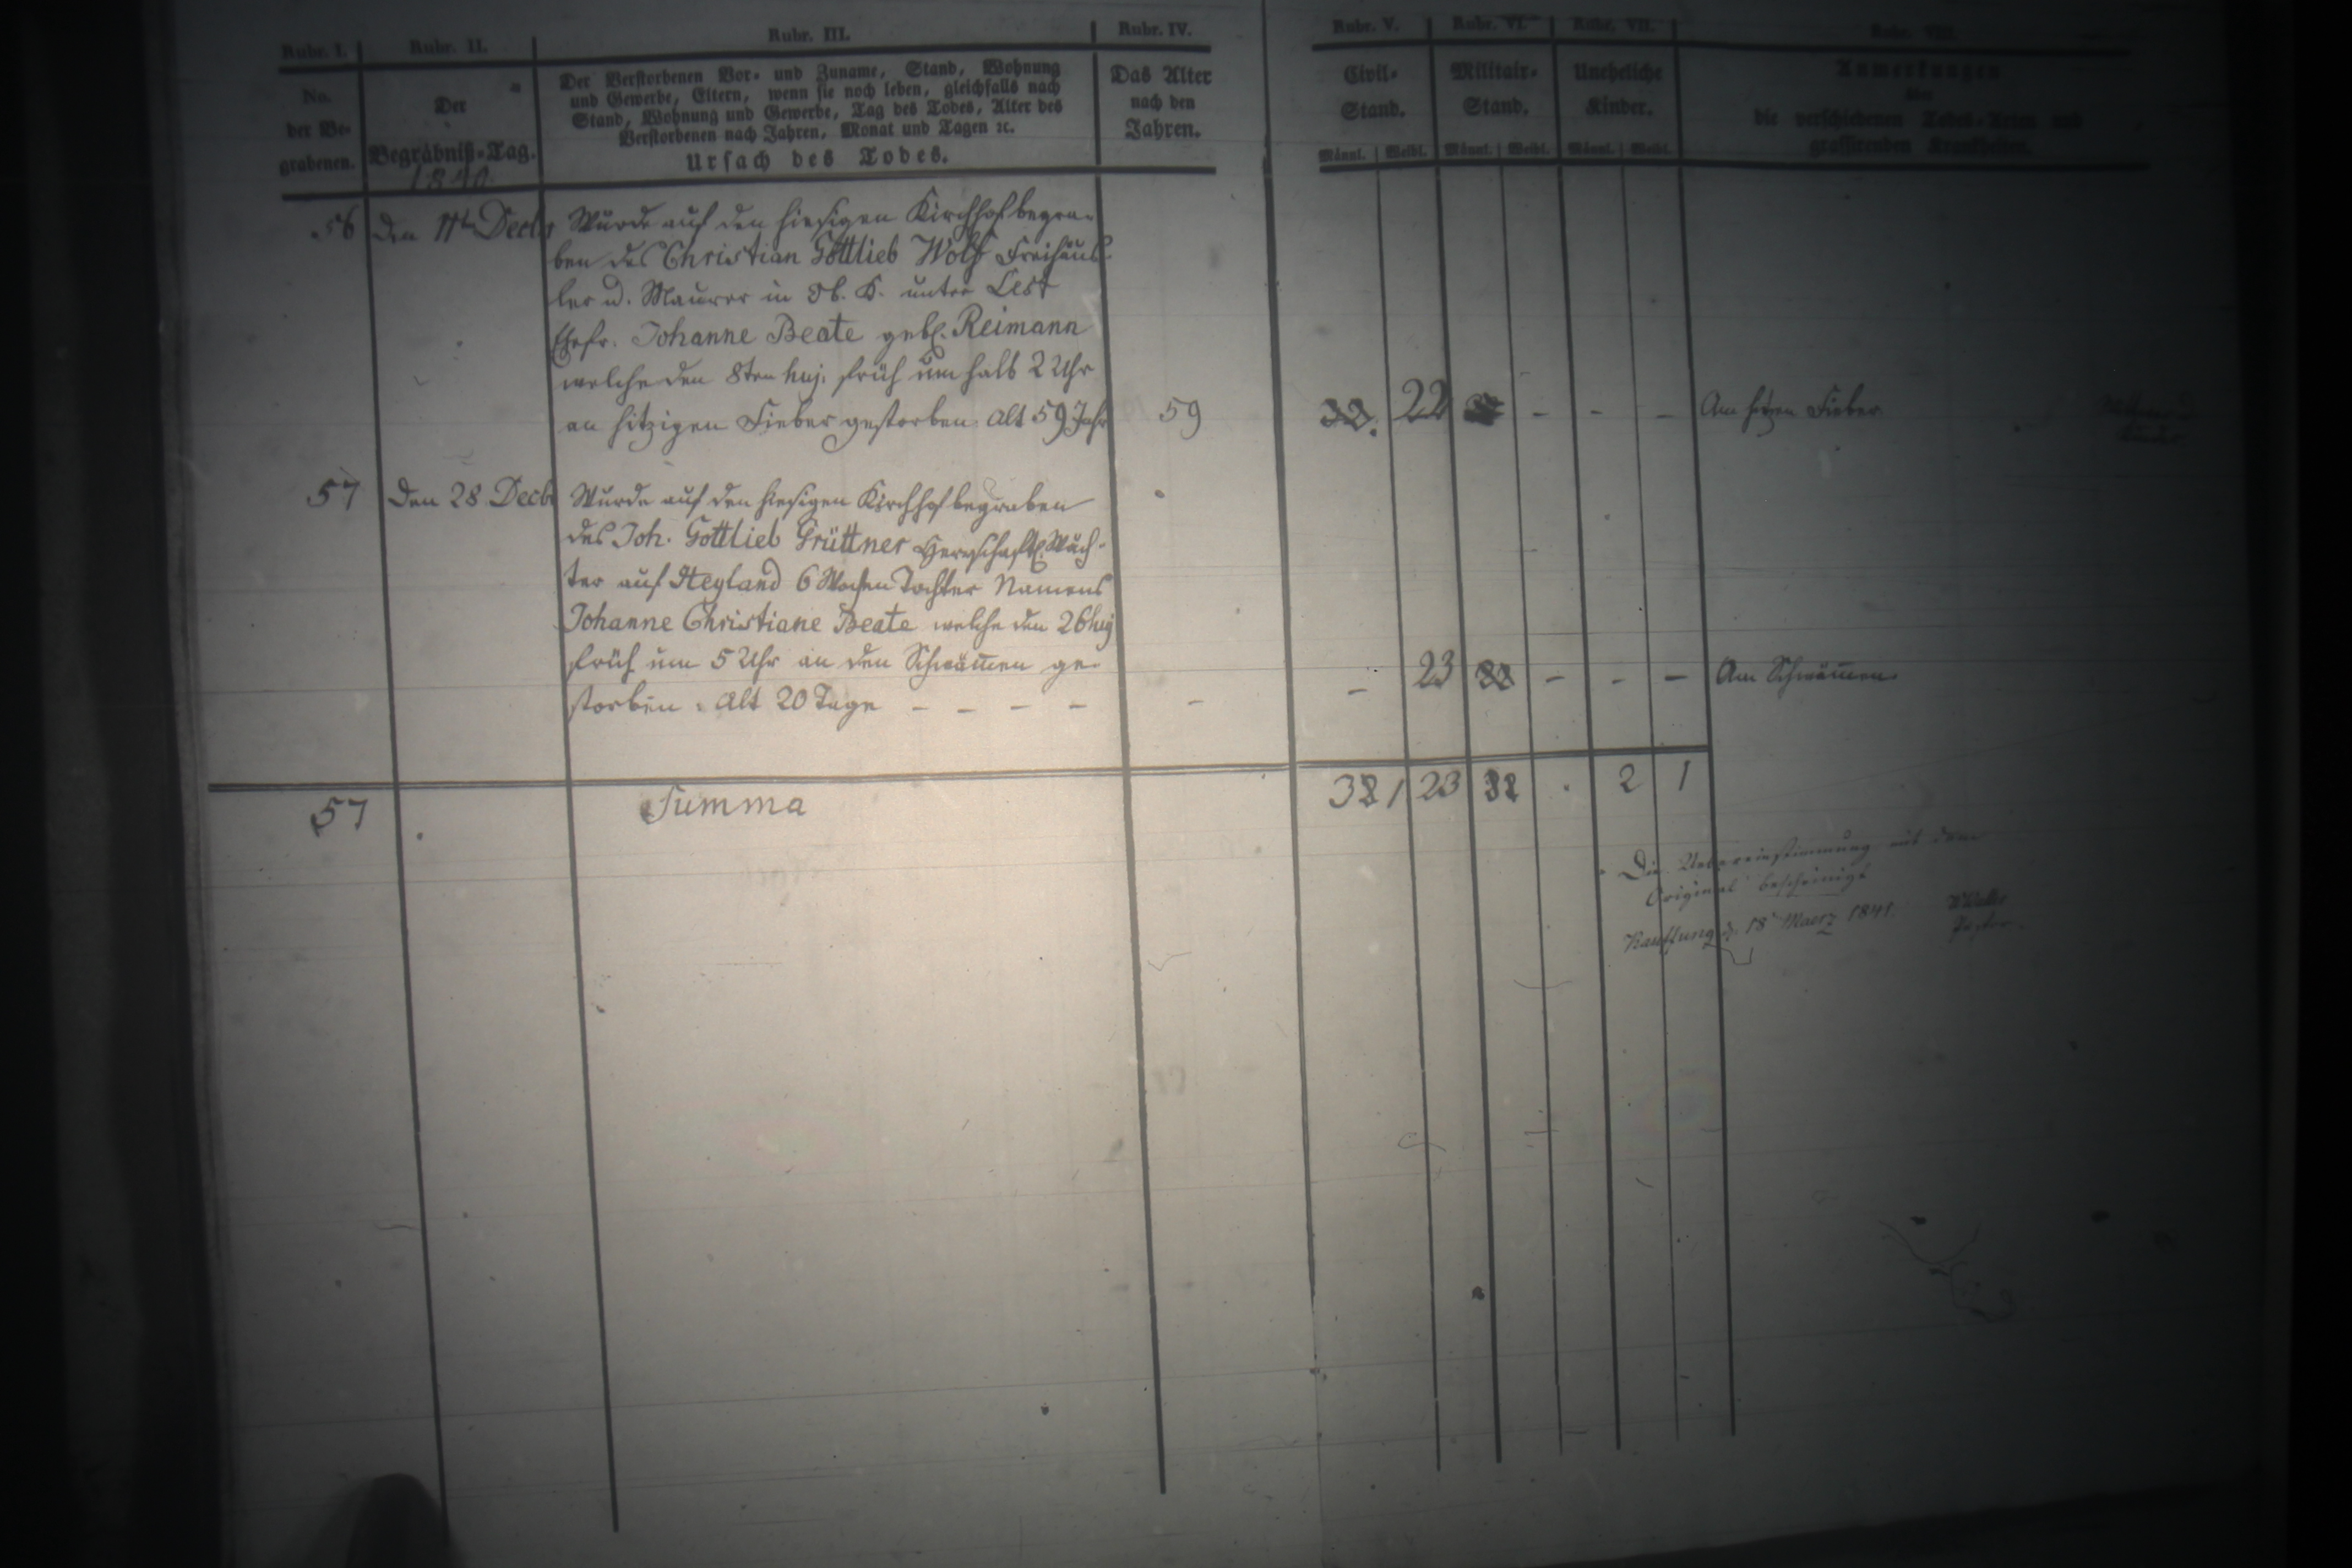 Rubr. I. Rubr. II. Rubr. III. Rubr. IV. Rubr. V. Rubr. VI. Rubr. VII. Rubr. VIII.
No.
der Be-
grabenen.
Der
Begräbniß-Tag.
1840.
Der Verstorbenen Vor- und Zuname, Stand, Wohnung
und Gewerbe, Eltern, wenn sie noch leben, gleichfalls nach
Stand, Wohnung und Gewerbe, Tag des Todes, Alter des
Verstorbenen nach Jahren, Monat und Tagen ꝛc.
Ursach des Todes.
Das Alter
nach den
Jahren.
Civil-
Stand.
Männl. Weibl.
Militair-
Stand.
Männl. Weibl.
Uneheliche
Kinder.
Männl. Weibl.
Anmerkungen
über
die verschiedenen Todes-Arten und
grassirenden Krankheiten.
56 den 11t Decbr Wurde auf den hiesigen Kirchhof begra-
ben des Christian Gottlieb Wolf Freihäus-
ler u. Maurer in Ob. K. unter Lest
Ehefr. Johanne Beate geb. Reimann
welche den 8ten huj. früh um halb 2 Uhr
an hitzigen Fieber gestorben. Alt 59 Jahr 59 22 - - - Am hitzgen Fieber
57 den 28 Decbr Wurde auf den hiesigen Kirchhof begraben
des Joh. Gottlieb Grüttner Herrschaftl. Wäch-
ter auf Heyland 6 Wochen Tochter Namens
Johanne Christiane Beate welche den 26 huj
früh um 5 Uhr an den Schwämen ge-
storben. Alt 20 Tage - - - - - - 23 - - - Am Schwämen
57 Summa 23 2 1
Die Uebereinstimmung mit dem
Original bescheinigt
Kauffung d. 18 Maerz 1841.
Pastor.